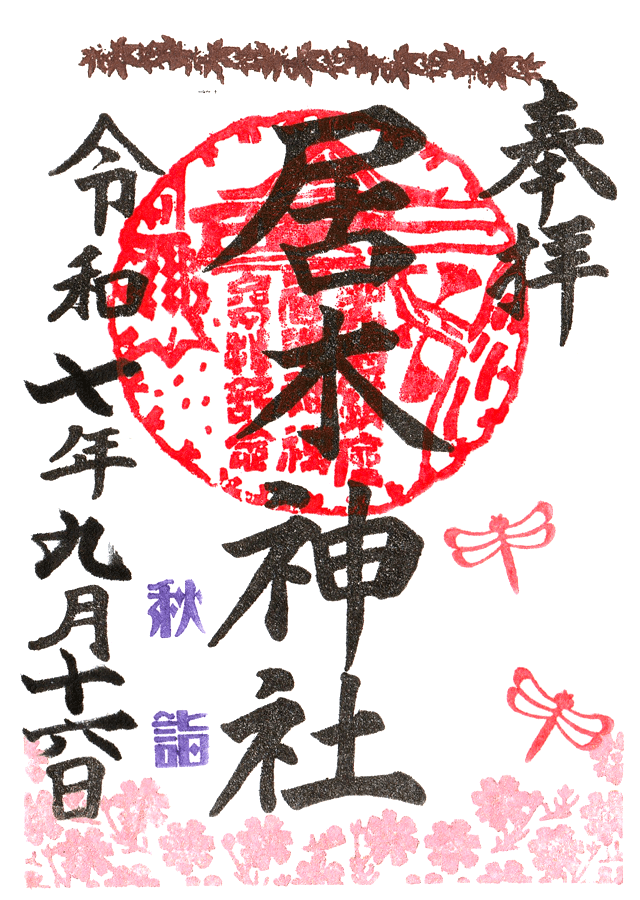 奉拝
居木神社
秋詣
令和七年九月十六日